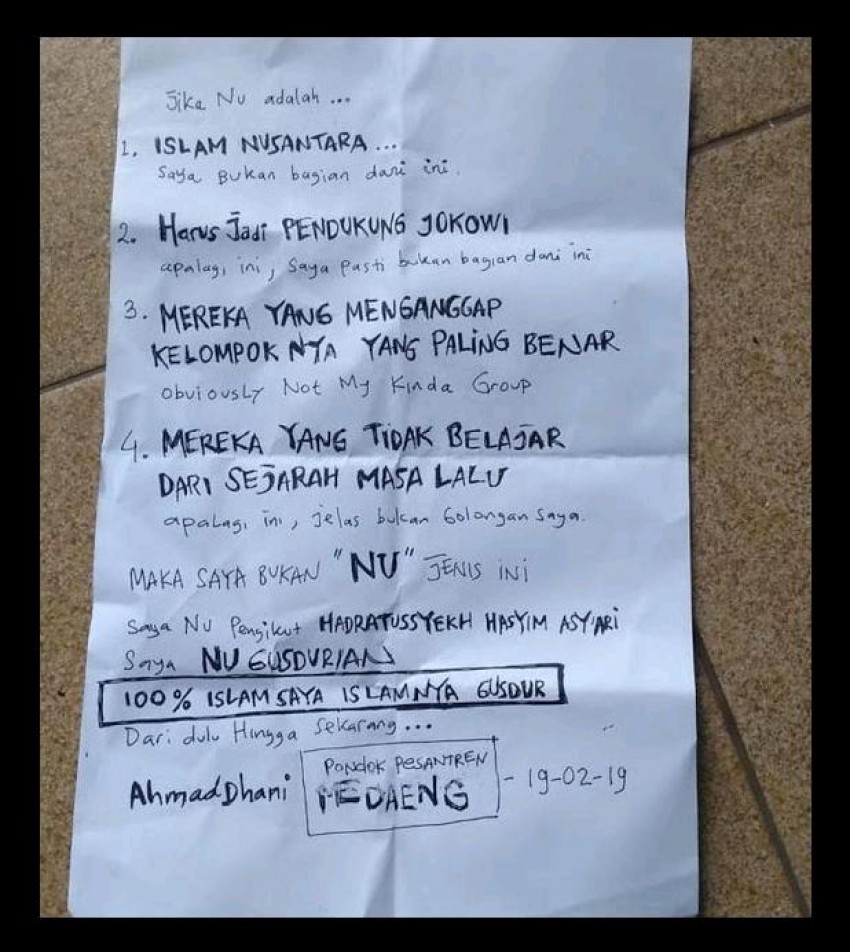 Jika NU adalah ...
1. ISLAM NUSANTARA ...
Saya Bukan bagian dari ini.
2. Harus Jadi PENDUKUNG JOKOWI
apalagi ini, Saya Pasti bukan bagian dari ini
3. MEREKA YANG MENGANGGAP
KELOMPOK NYA YANG PALING BENAR
Obviously Not My Kinda Group
4. MEREKA YANG TIDAK BELAJAR
DARI SEJARAH MASA LALU
apalagi ini, jelas bukan Golongan saya.
MAKA SAYA BUKAN "NU" JENIS INI
Saya NU Pengikut HADRATUSSYEKH HASYIM ASY'ARI
Saya NU GUSDURIAN
100% ISLAM SAYA ISLAMNYA GUSDUR
Dari dulu Hingga Sekarang...
Ahmad Dhani PONDOK PESANTREN MEDAENG - 19-02-19